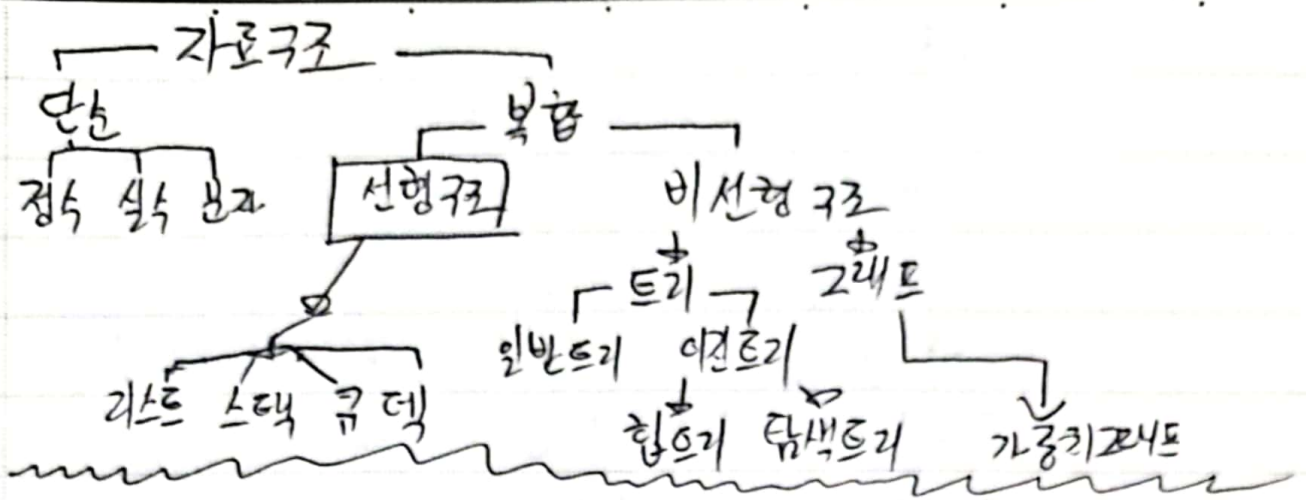 자료구조
단순 복합
정수 실수 문자 선형구조 비선형 구조
트리 그래프
일반트리 이진트리
리스트 스택 큐 덱
힙트리 탐색트리 가중치그래프